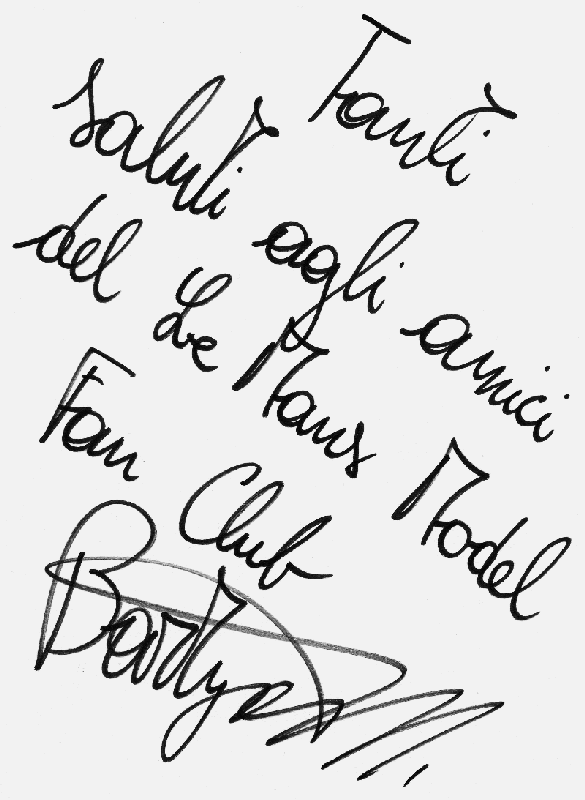 Tanti
saluti agli amici
del Le Mans Model
Fan Club